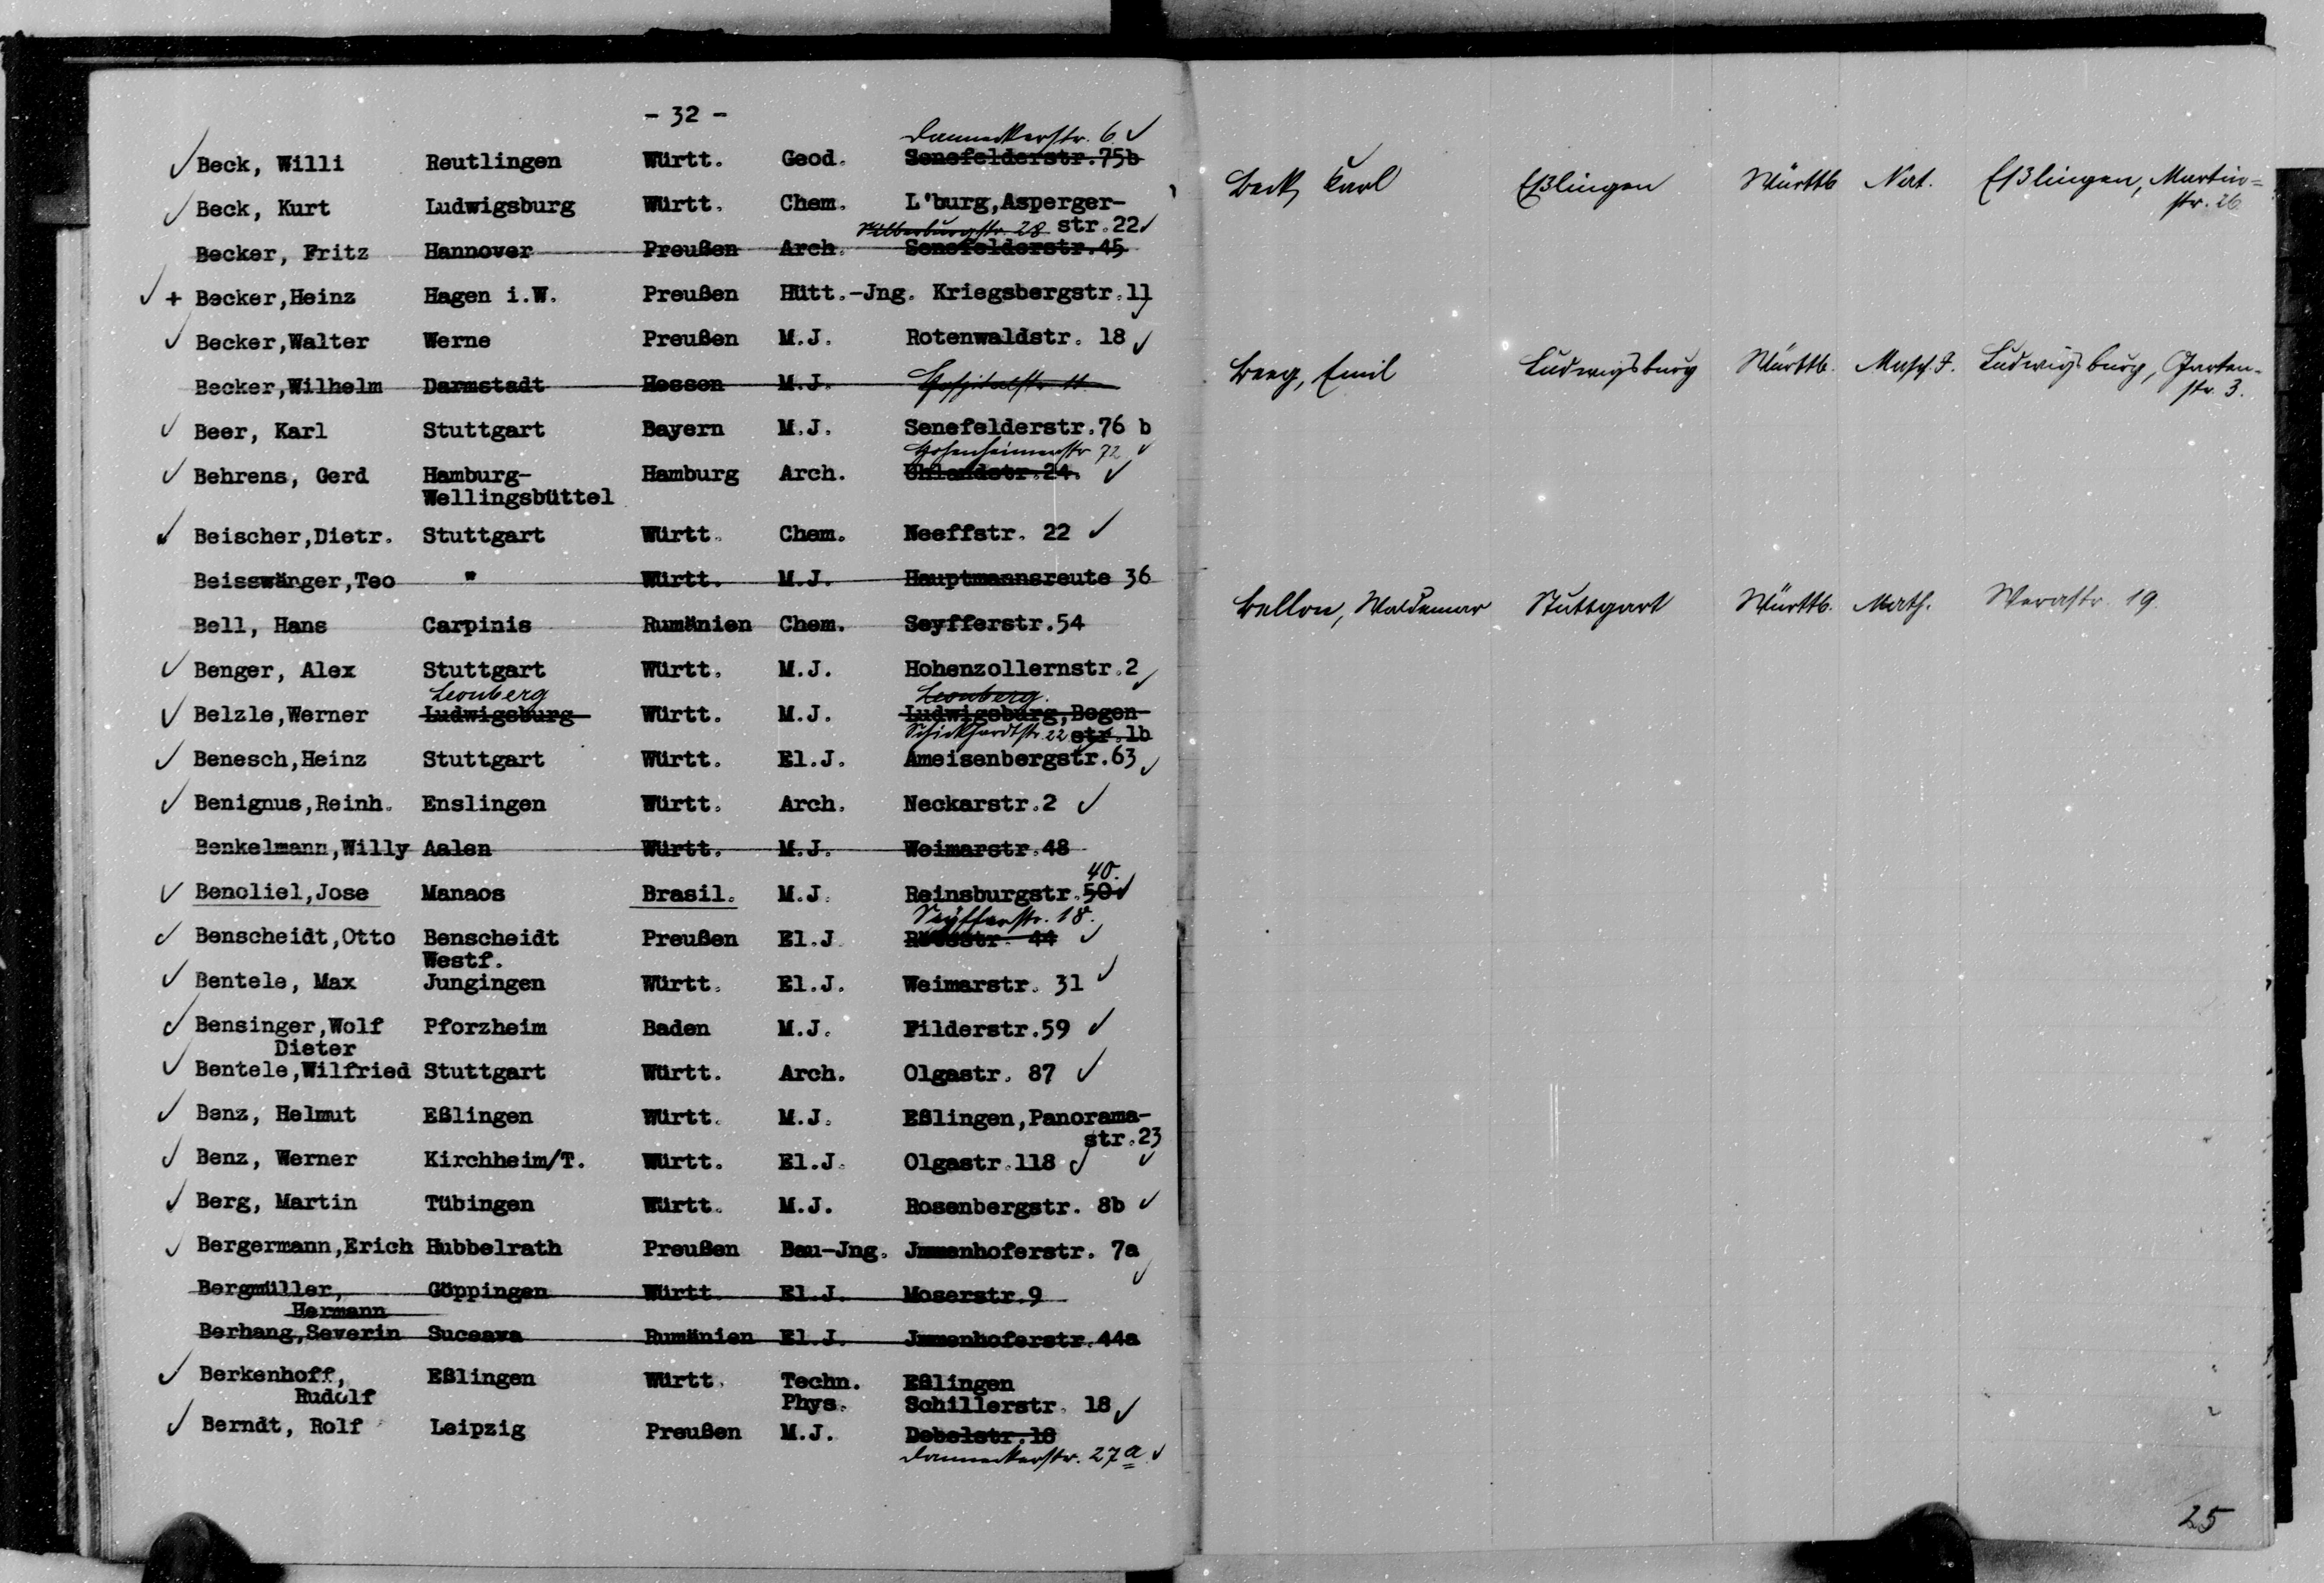 - 32 -
Danneckerstr. 6
Beck, Willi Reutlingen Württ. Geod. Senefelderstr.75b
Beck, Kurt Ludwigsburg Württ. Chem. L'burg,Asperger-
Silberburgstr. 28 str.22
Becker, Fritz Hannover Preußen Arch. Senefelderstr.45
+ Becker,Heinz Hagen i.W. Preußen Hütt.-Jng. Kriegsbergstr.11
Becker,Walter Werne Preußen M.J. Rotenwaldstr. 18
Becker,Wilhelm Darmstadt Hessen M.J. Hospitalstr. 11
Beer, Karl Stuttgart Bayern M.J. Senefelderstr.76 b
Hohenheimerstr 72
Behrens, Gerd Hamburg- Hamburg Arch. Uhlandstr.24.
Wellingsbüttel
Beischer,Dietr. Stuttgart Württ. Chem. Neeffstr. 22
Beisswänger,Teo " Württ. M.J. Hauptmannsreute 36
Bell, Hans Carpinis Rumänien Chem. Seyfferstr.54
Benger, Alex Stuttgart Württ. M.J. Hohenzollernstr.2
Leonberg Leonberg.
Belzle,Werner Ludwigsburg Württ. M.J. Ludwigsburg,Bogen-
Schickhardtstr. 22 str.1b
Benesch,Heinz Stuttgart Württ. El.J. Ameisenbergstr.63
Benignus,Reinh. Enslingen Württ. Arch. Neckarstr.2
Benkelmann,Willy Aalen Württ. M.J. Weimarstr.48
40.
Benoliel,Jose Manaos Brasil. M.J. Reinsburgstr.50
Seyfferstr. 18.
Benscheidt,Otto Benscheidt Preußen El.J. 44
Westf.
Bentele, Max Jungingen Württ. El.J. Weimarstr. 31
Bensinger,Wolf Pforzheim Baden M.J. Filderstr.59
Dieter
Bentele,Wilfried Stuttgart Württ. Arch. Olgastr. 87
Benz, Helmut Eßlingen Württ. M.J. Eßlingen,Panorama-
str.23
Benz, Werner Kirchheim/T. Württ. El.J. Olgastr.118
Berg, Martin Tübingen Württ. M.J. Rosenbergstr. 8b
Bergermann,Erich Hubbelrath Preußen Bau-Jng. Jmmenhoferstr. 7a
Bergmüller, Göppingen Württ El.J. Moserstr.9
Hermann
Berhang,Severin Suceava Rumänien El.J. Jmmenhoferstr.44a
Berkenhoff, Eßlingen Württ. Techn. Eßlingen
Rudolf Phys. Schillerstr. 18
Berndt, Rolf Leipzig Preußen M.J. Debelstr.18
Danneckerstr. 27a
Beck, Karl Eßlingen Württb Nat. Eßlingen, Martin=
str. 26
Berg, Emil Ludwigsburg Württb. Masch.I. Ludwigsburg, Garten-
str. 3.
Bellon, Waldemar Stuttgart Württb. Math. Werastr. 19.
25